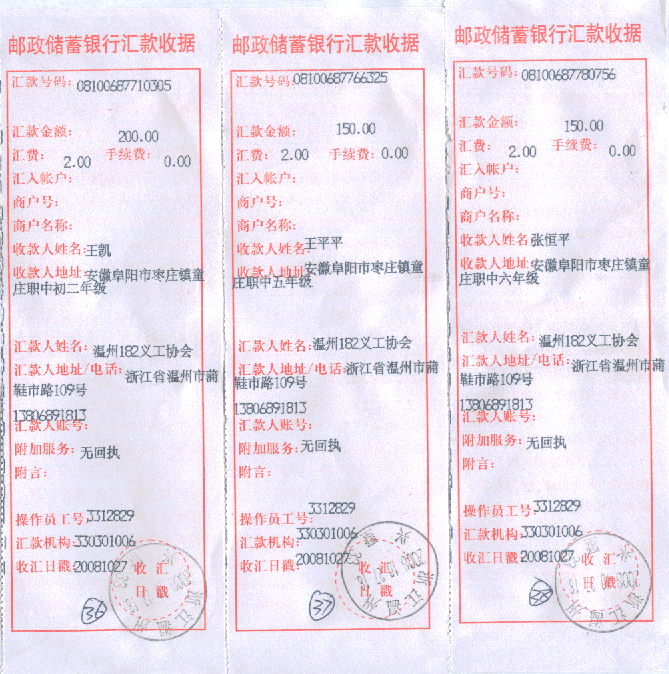 邮政储蓄银行汇款收据
汇款号码: 08100687710305
汇款金额: 200.00
汇费: 2.00 手续费: 0.00
汇入帐户:
商户号:
商户名称:
收款人姓名: 王凯
收款人地址: 安徽阜阳市枣庄镇童
庄职中初二年级
汇款人姓名: 温州182义工协会
汇款人地址/电话: 浙江省温州市蒲
鞋市路109号
13806891813
汇款人账号:
附加服务: 无回执
附言:
操作员工号: 3312829
汇款机构: 330301006
收汇日戳: 20081027
收汇
日戳
36
邮政储蓄银行汇款收据
汇款号码: 08100687766325
汇款金额: 150.00
汇费: 2.00 手续费: 0.00
汇入帐户:
商户号:
商户名称:
收款人姓名: 王平平
收款人地址: 安徽阜阳市枣庄镇童
庄职中五年级
汇款人姓名: 温州182义工协会
汇款人地址/电话: 浙江省温州市蒲
鞋市路109号
13806891813
汇款人账号:
附加服务: 无回执
附言:
操作员工号: 3312829
汇款机构: 330301006
收汇日戳: 20081027
收汇
日戳
37
邮政储蓄银行汇款收据
汇款号码: 08100687780756
汇款金额: 150.00
汇费: 2.00 手续费: 0.00
汇入帐户:
商户号:
商户名称:
收款人姓名: 张恒平
收款人地址: 安徽阜阳市枣庄镇童
庄职中六年级
汇款人姓名: 温州182义工协会
汇款人地址/电话: 浙江省温州市蒲
鞋市路109号
13806891813
汇款人账号:
附加服务: 无回执
附言:
操作员工号: 3312829
汇款机构: 330301006
收汇日戳: 20081027
收汇
日戳